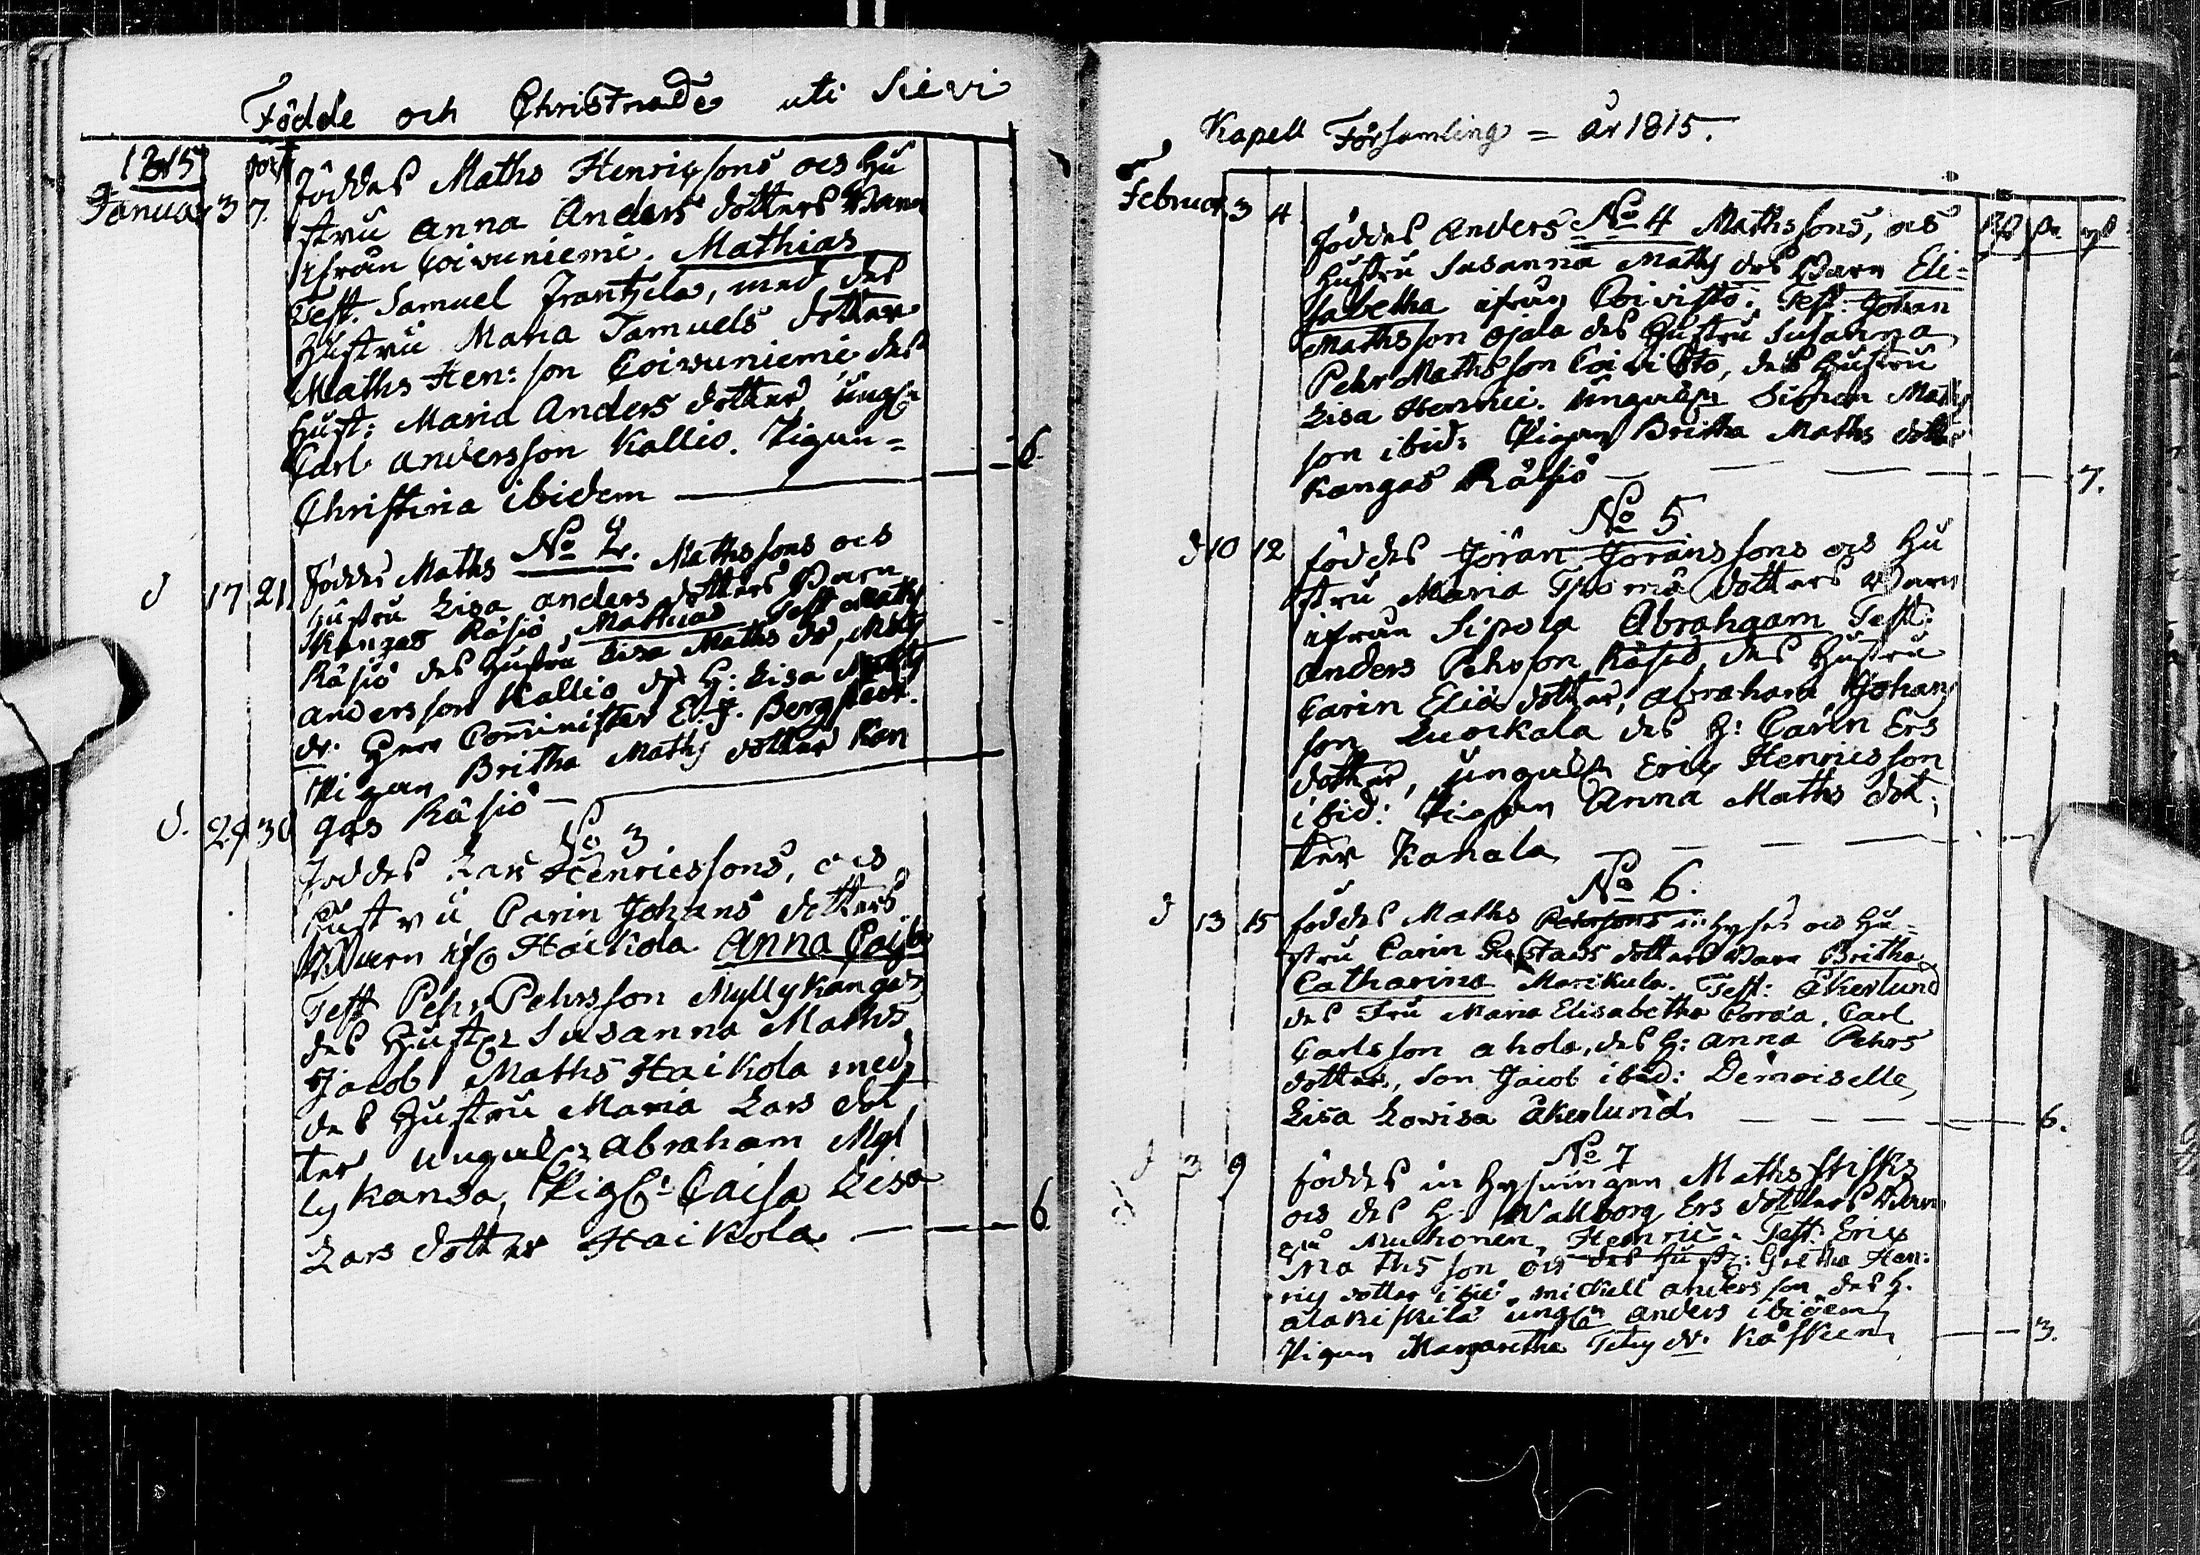 Födde och Christnade uti Sievi
1815
Januar 3 7. Föddes Maths Henricssons ocs Hu
stru Anna Anders dotters Barn
ifrån Coivuniemi. Mathias
Test. Samuel Frantzila, med des
Hustru Maria Samuels dotter
Maths Hen: son Coivuniemi des
Hust: Maria Anders dotter
Carl Andersson Kallio. Pigan =
Christina ibidem 6.
No 2.
d 17 21 Föddes Maths Mathssons ocs
Hustru Lisa anders dotters Barn
Kangas Räsiö, Mathias Test Maths
Räsiö des Hustru Lisa Maths dr, Maths
andersson Kallio des H: Lisa Maths
dr. Herr Comminister Bergstedt.
Pigan Britha Maths dotter Kan
gas Räsiö
No 3
d. 29 30 Föddes Lars Henricssons, ocs
Hustru Carin Johans dotters
Barn Haikola Anna Caisa
Test Pehr Pehrsson Myllykangas
des Susanna Maths
Jacob Maths Haikola med
des Hustru Maria Lars dot
ter Abraham Myl
lykangas, Caisa Lisa
Lars dotter Haikola 6
Kapell Församling = år 1815.
Februar 3 4 No 4
Föddes Anders Mathssons, ocs
Hustru Susanna Maths drs Barn Eli=
sabetha ifrån Coivisto: Test: Johan
Mathsson Ojala des Hustru Susanna
Pehr Mathsson Coivisto, des Hustru
Lisa Henric. Simon Maths
son ibid: Pigan Britha Maths dotter
Kangas Räisiö 7.
No 5
d 10 12 föddes Jöran Joranssons ocs Hu
stru Maria Thomæ dotters Barn
ifrån Sipola Abraham Test:
Anders Pehrson Räsiö, des Hustru
Carin Eliæ dotter, Abraham Johan
son Luokala des H: Carin Ers
dotter, Eric Henricsson
ibid: Pigan Anna Maths dot
ter Kahala
No 6.
d 13 15 föddes Maths Pehrsons inhyses ocs Hu=
stru Carin Gustavs dotters Barn Britha
Catharina Marikula. Test: Åkerlund
des Fru Maria Elisabetha Corda. Carl
Carlsson ahola, des H: Anna Pehrs
dotter, Son Jacob ibid: Demoiselle
Lisa Lovisa Åkerlund 6.
No 7
d 3 9 föddes in Hysningen Maths
ocs des H: Wallborg Ers dotters Barn
Muhonen, Henric. Test: Eric
Mathsson ocs des Hust: Gretha Hen:
rics dotter ibid. Mickell Andersson des H.
alakiskila Anders ibidem
Pigan Margaretha dr. 3.